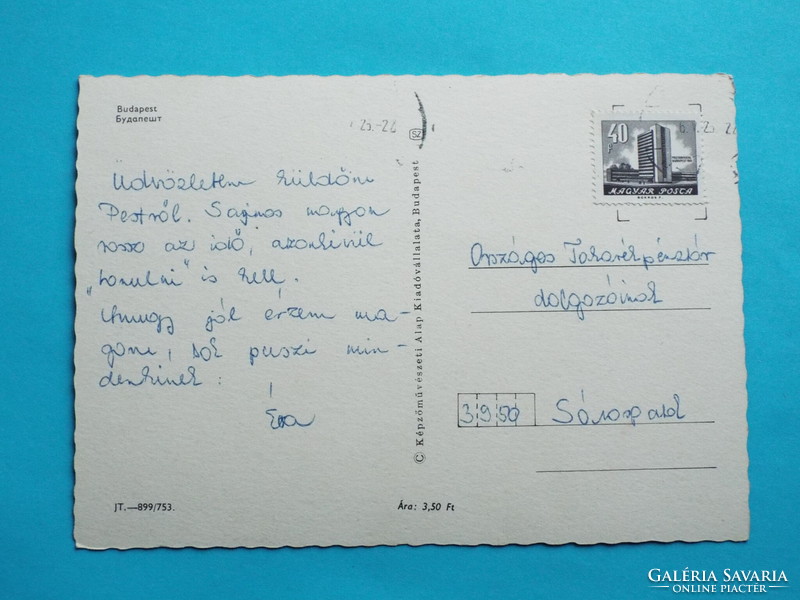 Budapest
Будапешт
25.-28
SZ
40 f
MAGYAR POSTA
Üdvözletem küldöm
Pestről. Sajnos nagyon
rossz az idő, azonkívül
"tanulni" is kell.
Amugy jól érzem ma-
gam, sok puszi min-
denkinek:
Éva
Országos Takarékpénztár
dolgozóinak
3950 Sárospatak
© Képzőművészeti Alap Kiadóvállalata, Budapest
JT.—899/753.
Ára: 3,50 Ft
GALÉRIA SAVARIA
ONLINE PIACTÉR